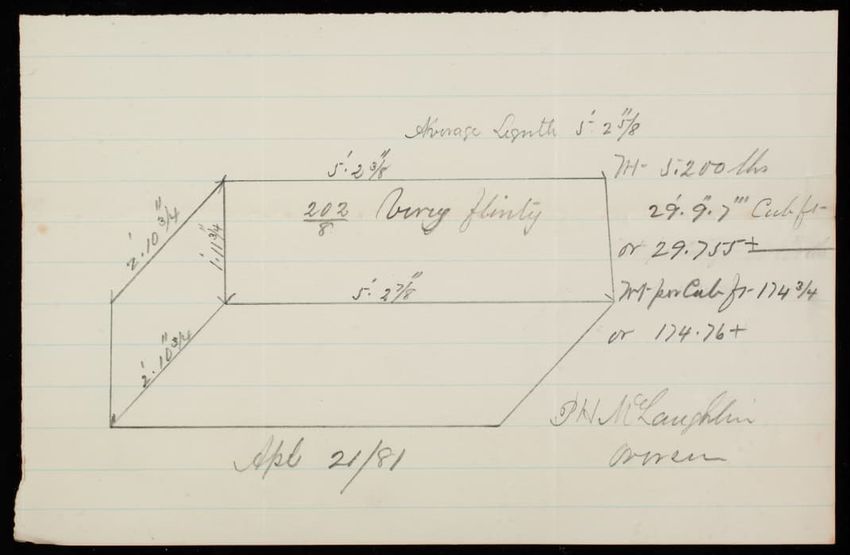 Average Length 5' 2 5/8"
5'. 2 3/8"
Wt- 5.200 lbs
202/8 Very flinty
29'. 9". 7''' Cub ft-
2'. 10 3/4"
1'. 11 3/4"
or 29.755+
5'. 2 7/8"
Wt- per Cub ft- 174 3/4
2'. 10 3/4"
or 174.76+
P H McLaughlin
Apl 21/81